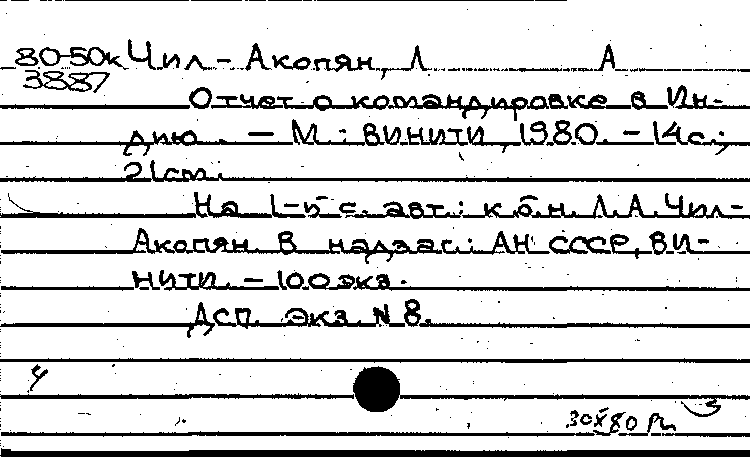 80-50к Чил-Акопян, Л А
3887
Отчет о командировке в Ин-
дию. — М.: ВИНИТИ, 1980. — 14с.;
21см.
На 1-й с. авт.: к.б.н. Л.А. Чил-
Акопян. В надзаг.: АН СССР, ВИ-
НИТИ. — 100 экз.
Дсп. Экз. N 8.
30X80